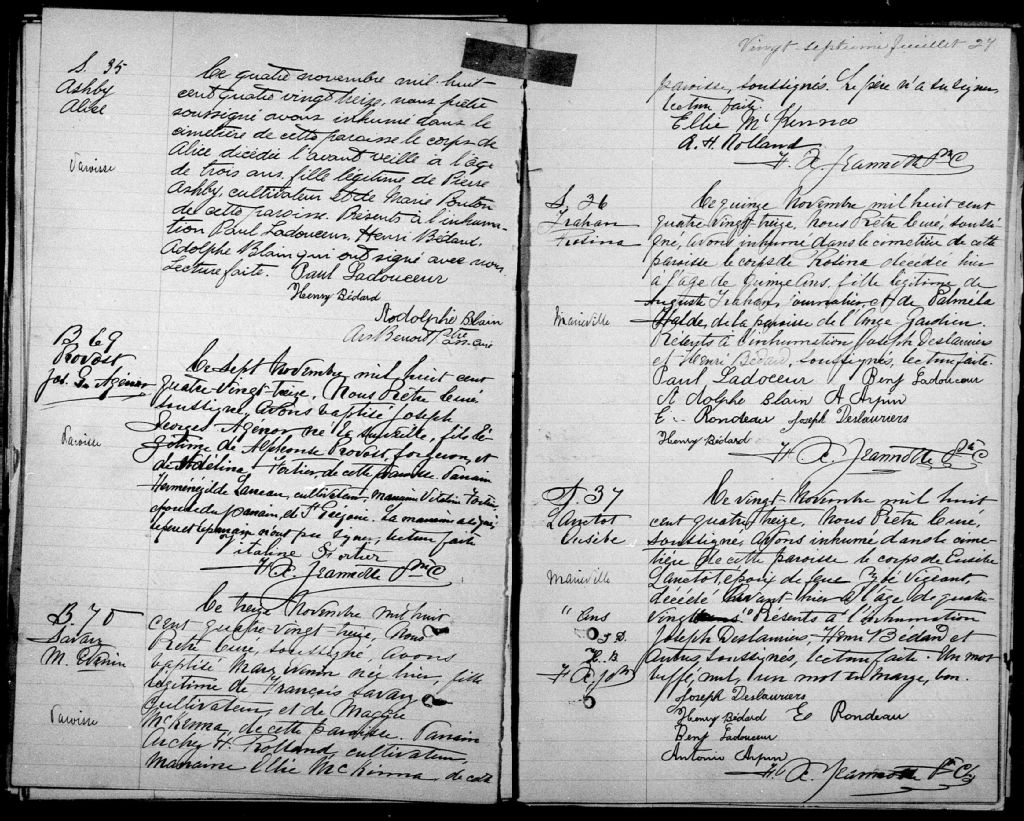 S. 35
Ashby
Alice
Paroisse
Ce quatre novembre mil huit
cent quatre vingt treize, nous prêtre
soussigné avons inhumé dans le
cimetière de cette paroisse le corps de
Alice décédée l'avant veille à l'âge
de trois ans, fille légitime de Pierre
Ashby, cultivateur et de Marie Bouton
de cette paroisse. Présents à l'inhuma-
tion Paul Ladouceur, Henri Bédard,
Adolphe Blain qui ont signé avec nous.
Lecture faite. Paul Ladouceur
Henry Bédard
Rodolphe Blain
Benoit Ptre
B. 69
Provost
Jos. G. Agénor
Paroisse
Ce sept Novembre, mil huit cent
quatre-vingt-treize, Nous Prêtre Curé,
soussigné, avons baptisé Joseph
Georges Agénor né la surveille, fils lé-
gitime de Alphonse Provost, forgeron, et
de Adélina Fortier, de cette paroisse. Parrain
Herménégilde Lareau, cultivateur, marraine Vitaline Fortier,
épouse du parrain, de St Grégoire. La marraine a signé,
le père et le parrain n'ont pu signer, lecture faite
Vitaline Fortier
F. X. Jeannotte Ptre C
B. 70
Savary
M. Evanin
Paroisse
Ce treize Novembre mil huit
cent quatre-vingt-treize, Nous
Prêtre Curé, soussigné, avons
baptisé Mary née hier, fille
légitime de François Savary
cultivateur, et de Maggie
McKenna, de cette paroisse. Parrain
Archy H. Rolland, cultivateur,
Marraine Ellie McKenna, de cette
Vingt-septième feuillet 27
paroisse, soussignés. Le père n'a su signer
lecture faite.
Ellie McKenna
A. H. Rolland
F. X. Jeannotte Ptre C
S. 36
Trahan
Rosina
Marieville
Ce quinze Novembre mil huit cent
quatre-vingt-treize, Nous Prêtre Curé, soussi-
gné, avons inhumé dans le cimetière de cette
paroisse le corps de Rosina décédée hier
à l'âge de quinze ans, fille légitime de
Auguste Trahan, journalier, et de Palméla
Halde, de la paroisse de l'Ange Gardien.
Présents à l'inhumation Joseph Deslauriers
et Henri Bédard, soussignés, lecture faite.
Paul Ladoceur Benj Ladouceur
Adolphe Blain A Arpin
E. Rondeau Joseph Deslauriers
Henry Bédard
F. X. Jeannotte Ptre C
S. 37
Lanctot
Eusèbe
Marieville
" ans
J. D.
H. B
F. X. J. Ptr
Ce vingt Novembre mil huit
cent quatre treize, Nous Prêtre Curé,
soussigné, avons inhumé dans le cime-
tière de cette paroisse le corps de Eusèbe
Lanctot, époux de feue Zoé Vigeant,
décédé avant-hier à l'âge de quatre-
vingt " Présents à l'inhumation
Joseph Deslauriers, Henri Bédard et
autres, soussignés, lecture faite. Un mot
biffé, nul, un mot en marge, bon.
Joseph Deslauriers
Henry Bédard E Rondeau
Benj Ladouceur
Antonio Arpin
F. X. Jeannotte Ptre C